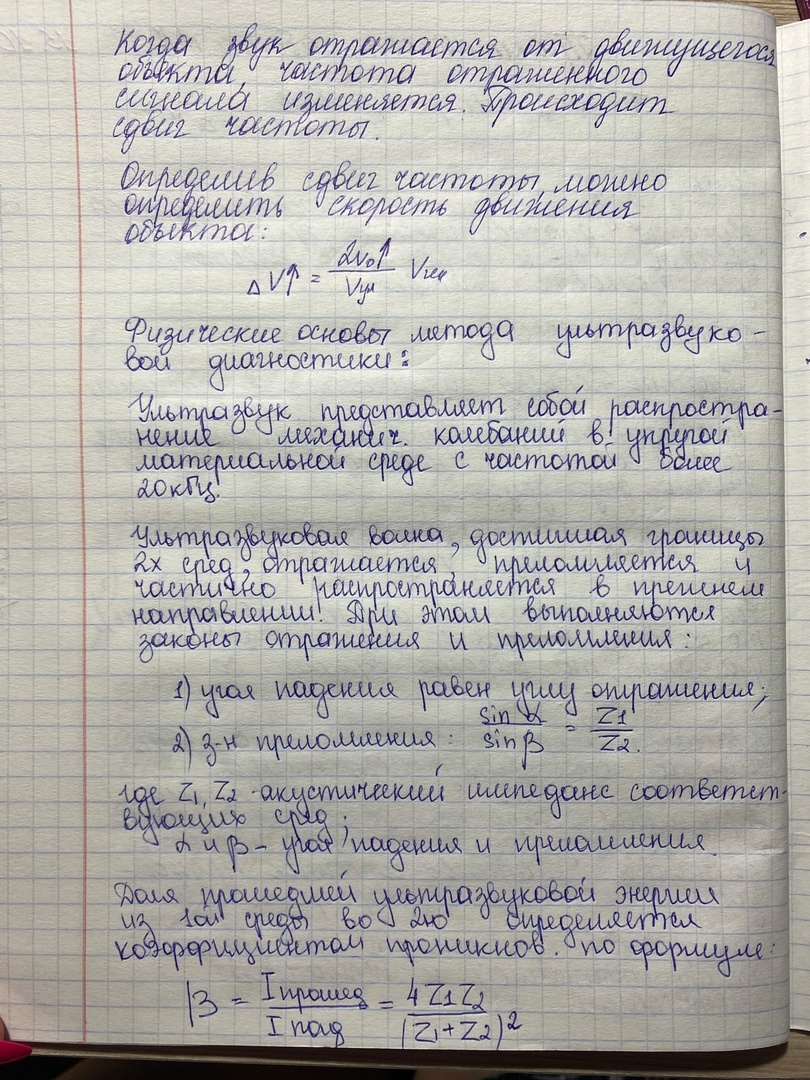 Когда звук отражается от движущегося
объекта, частота отраженного
сигнала изменяется. Происходит
сдвиг частоты.
Определив сдвиг частоты, можно
определить скорость движения
объекта:
ΔV↑ = 2v₀↑ / Vул
Физические основы метода ультразвуко-
вой диагностики:
Ультразвук представляет собой распростра-
нение механич. колебаний в упругой
материальной среде с частотой более
20кГц.
Ультразвуковая волна, достигшая границы
2х сред, отражается, преломляется и
частично распространяется в прежнем
направлении. При этом выполняются
законы отражения и преломления:
1) угол падения равен углу отражения;
2) з-н преломления: sin α / sin β = Z1 / Z2.
где Z1, Z2 - акустический импеданс соответст-
вующих сред;
α и β - угол падения и преломления.
Доля прошедшей ультразвуковой энергии
из 1ой среды во 2ю определяется
коэффициентом проникнов. по формуле:
β = I прошед / I пад = 4 Z1 Z2 / (Z1 + Z2)²